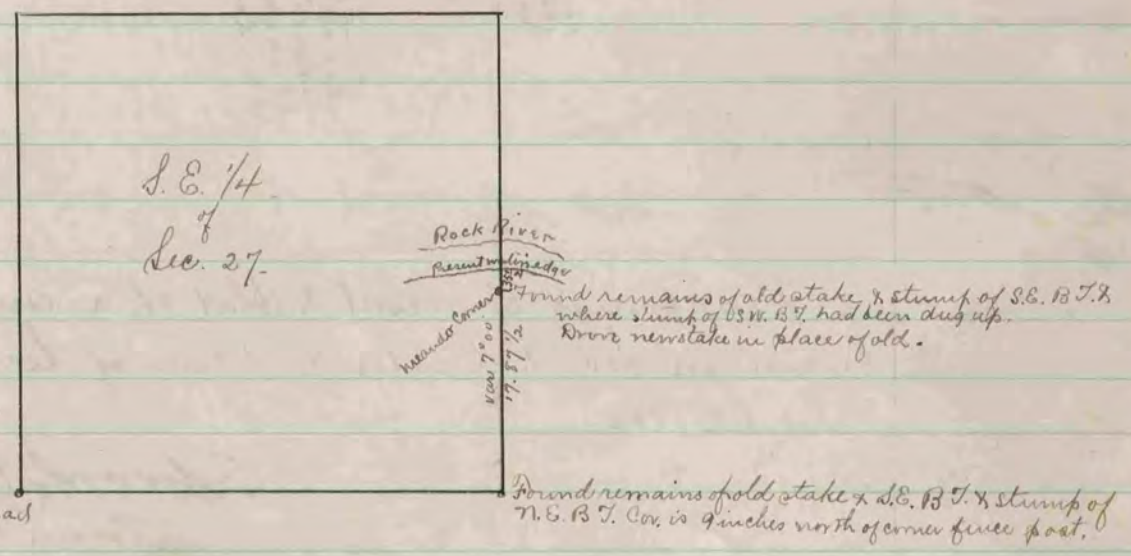 S. E. 1/4
of
Sec. 27.
Rock River
Present waters edge
Meander Corner
Found remains of old stake & stump of S.E. B T. &
where stump of S.W. B T. had been dug up.
Drove new stake in place of old.
var 7°00
17.87 1/2
Found remains of old stake & S.E. B T. & stump of
N.E. B T. Cor. is 9 inches north of corner fence post.